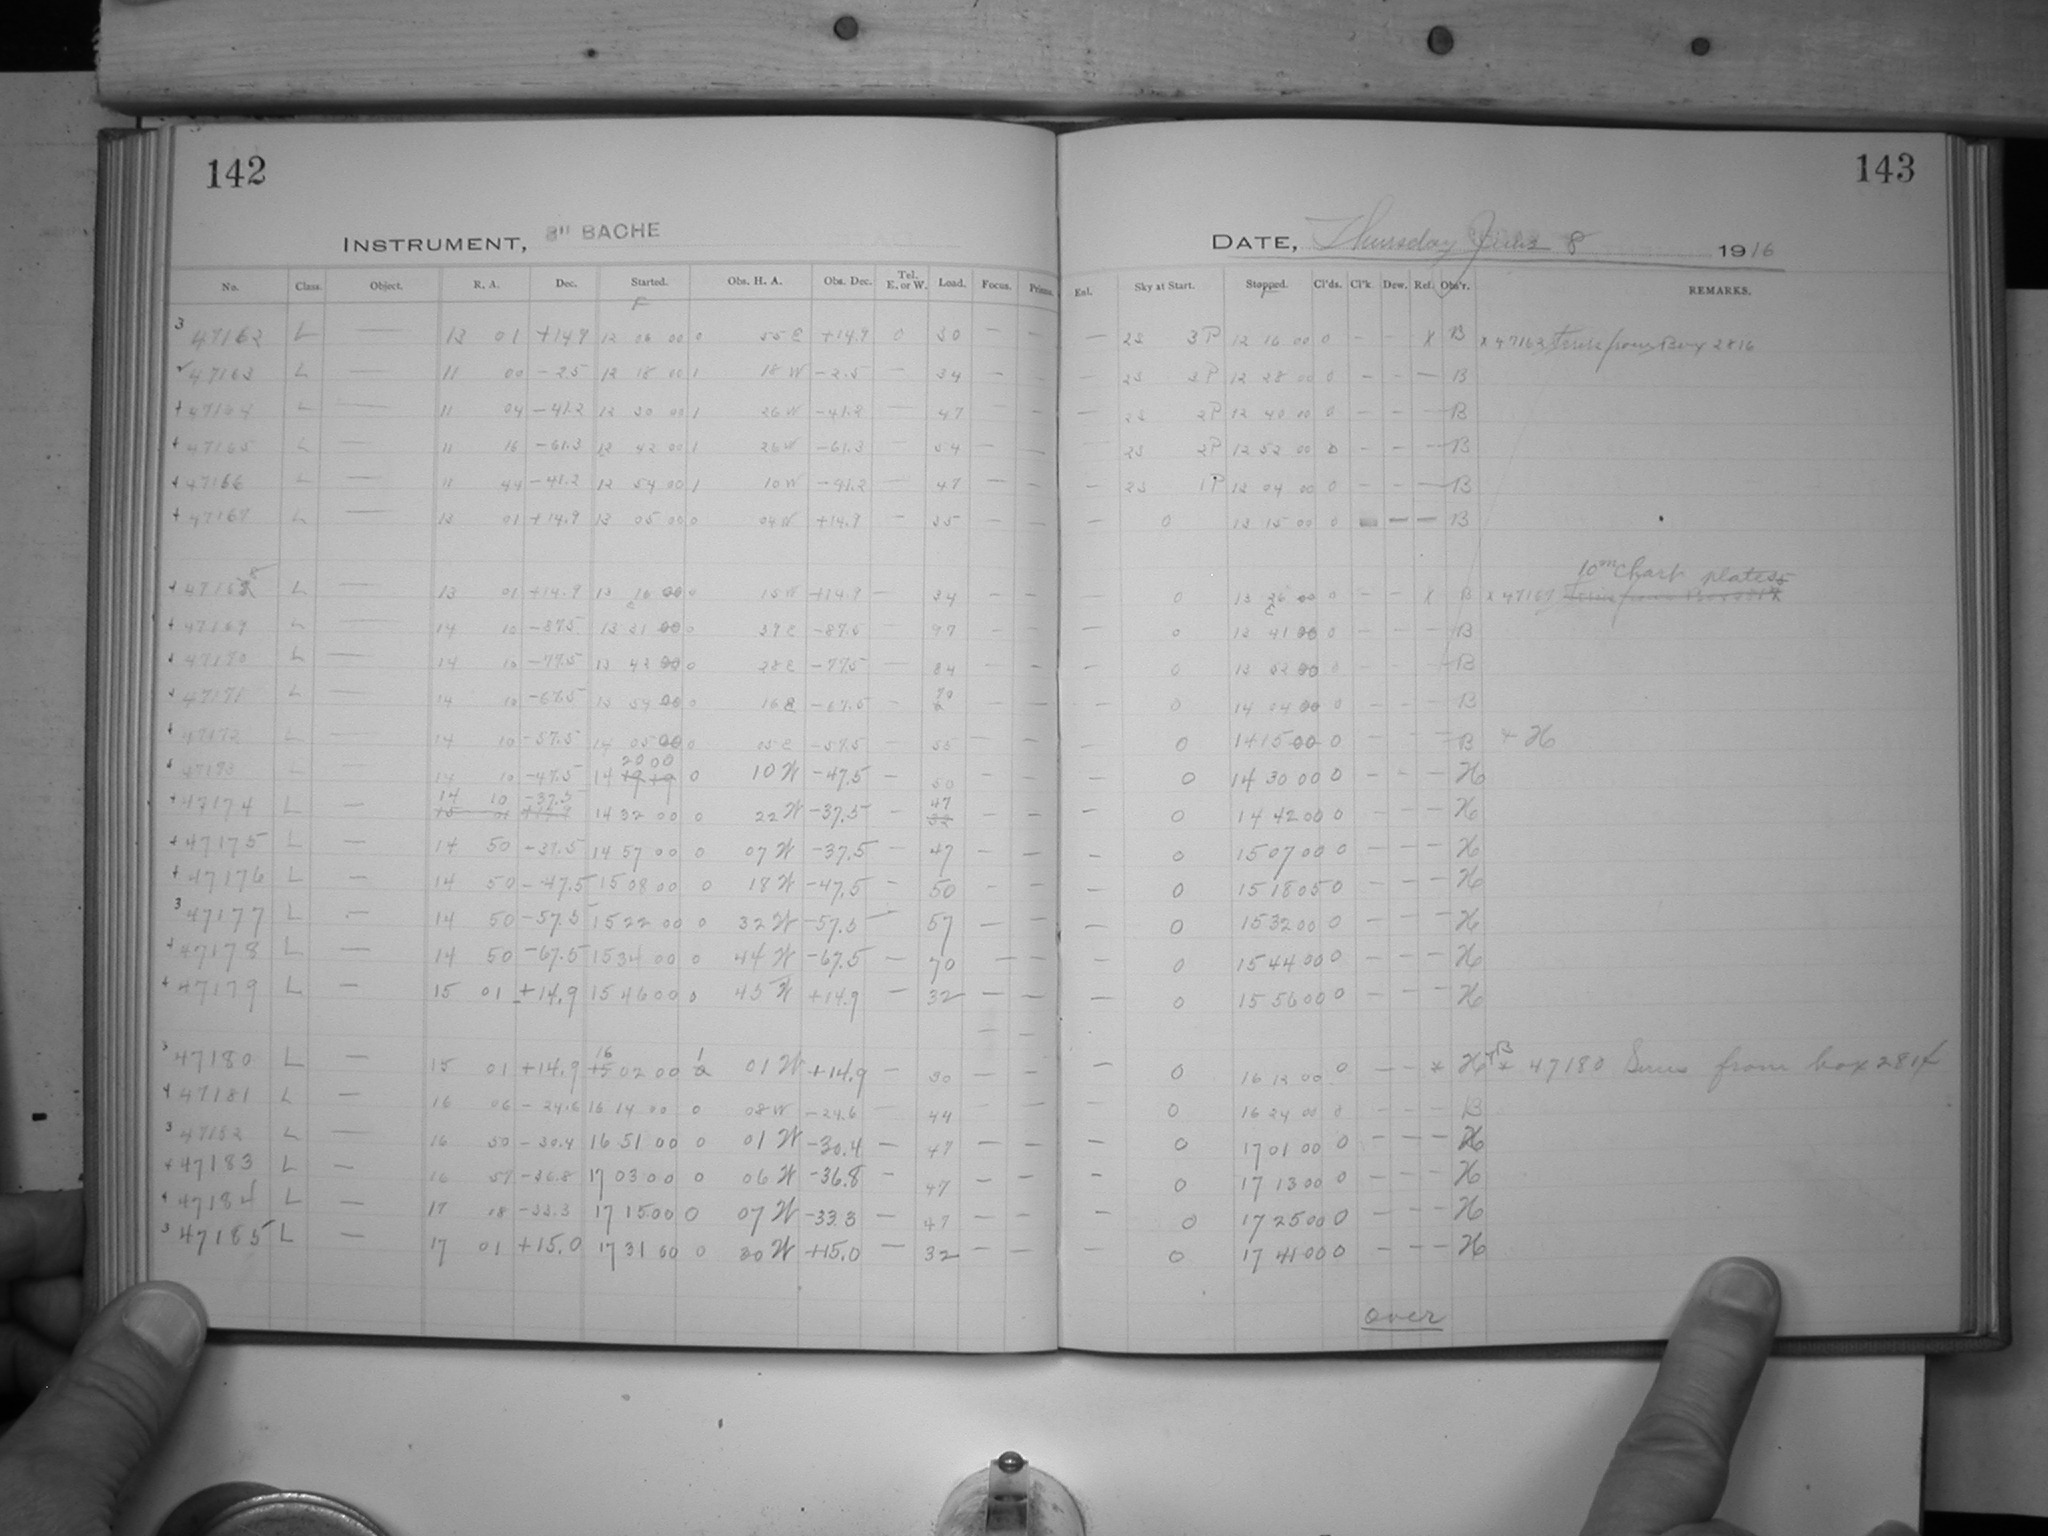 142
143
INSTRUMENT, 8" BACHE
DATE, Thursday June 8 1916
No. Class. Object. R. A. Dec. Started. Obs. H. A. Obs. Dec. Tel. E. or W. Load. Focus. Prisms. Enl. Sky at Start. Stopped. Cl'ds. Cl'k. Dew. Ref. Obs'r. REMARKS.
F F
3 47162 L — 13 01 +14.9 12 06 00 0 55 E +14.9 0 30 — — — 2S 3P 12 16 00 0 — — x B x 47162 from Box 2816
47163 L — 11 00 -2.5 12 18 00 1 18 W -2.5 — 34 — — — 2S 2P 12 28 00 0 — — — B
47164 L — 11 04 -41.2 12 30 00 1 26 W -41.2 — 47 — — — 2S 2P 12 40 00 0 — — — B
47165 L — 11 16 -61.3 12 42 00 1 26 W -61.3 — 54 — — — 2S 2P 12 52 00 0 — — — B
47166 L — 11 44 -41.2 12 54 00 1 10 W -41.2 — 47 — — — 2S 1P 12 04 00 0 — — — B
47167 L — 13 01 +14.9 13 05 00 0 04 W +14.9 — 35 — — — 0 13 15 00 0 — — B
10m Chart plates
47168 L — 13 01 +14.9 13 16 00 0 15 W +14.9 — 34 — — — 0 13 26 00 0 — — x B x 47167
47169 L — 14 10 -87.5 13 31 00 0 39 E -87.5 — 97 — — — 0 13 41 00 0 — — — B
47170 L — 14 10 -77.5 13 42 00 0 28 E -77.5 — 84 — — — 0 13 52 00 0 — — — B
47171 L — 14 10 -67.5 13 54 00 0 16 E -67.5 — 70 — — — 0 14 04 00 0 — — — B
47172 L — 14 10 -57.5 14 05 00 0 05 E -57.5 — 55 — — — 0 14 15 00 0 — — — B + H
47173 L — 14 10 -47.5 14 20 00 0 10 W -47.5 — 50 — — — 0 14 30 00 0 — — — H
47174 L — 14 10 -37.5 14 32 00 0 22 W -37.5 — 47 — — — 0 14 42 00 0 — — — H
47175 L — 14 50 -37.5 14 57 00 0 07 W -37.5 — 47 — — — 0 15 07 00 0 — — — H
47176 L — 14 50 -47.5 15 08 00 0 18 W -47.5 — 50 — — — 0 15 18 05 0 — — — H
3 47177 L — 14 50 -57.5 15 22 00 0 32 W -57.5 — 57 — — — 0 15 32 00 0 — — — H
47178 L — 14 50 -67.5 15 34 00 0 44 W -67.5 — 70 — — — 0 15 44 00 0 — — — H
47179 L — 15 01 +14.9 15 46 00 0 45 W +14.9 — 32 — — — 0 15 56 00 0 — — — H
3 47180 L — 15 01 +14.9 16 02 00 1 01 W +14.9 — 30 — — — 0 16 12 00 0 — — * H+B * 47180 Series from box 2814
47181 L — 16 06 -24.6 16 14 00 0 08 W -24.6 — 44 — — — 0 16 24 00 0 — — — B
3 47182 L — 16 50 -30.4 16 51 00 0 01 W -30.4 — 47 — — — 0 17 01 00 0 — — — H
47183 L — 16 57 -36.8 17 03 00 0 06 W -36.8 — 47 — — — 0 17 13 00 0 — — — H
47184 L — 17 08 -33.3 17 15 00 0 07 W -33.3 — 47 — — — 0 17 25 00 0 — — — H
3 47185 L — 17 01 +15.0 17 31 00 0 30 W +15.0 — 32 — — — 0 17 41 00 0 — — — H
over